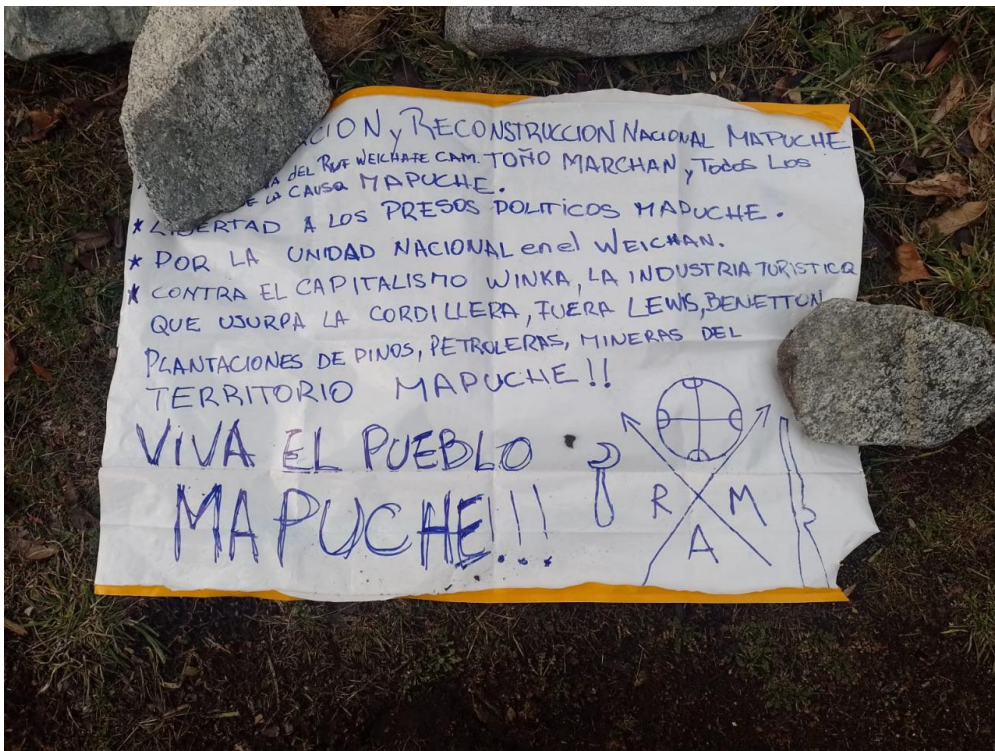 CION y RECONSTRUCCION NACIONAL MAPUCHE
DEL WEICHAFE CAM. TOÑO MARCHAN, y TODOS LOS
LA CAUSA MAPUCHE.
* LIBERTAD A LOS PRESOS POLITICOS MAPUCHE.
* POR LA UNIDAD NACIONAL en el WEICHAN.
* CONTRA EL CAPITALISMO WINKA, LA INDUSTRIA TURISTICA
QUE USURPA LA CORDILLERA, FUERA LEWIS, BENETTON
PLANTACIONES DE PINOS, PETROLERAS, MINERAS DEL
TERRITORIO MAPUCHE!!
VIVA EL PUEBLO
MAPUCHE!!!
R A M